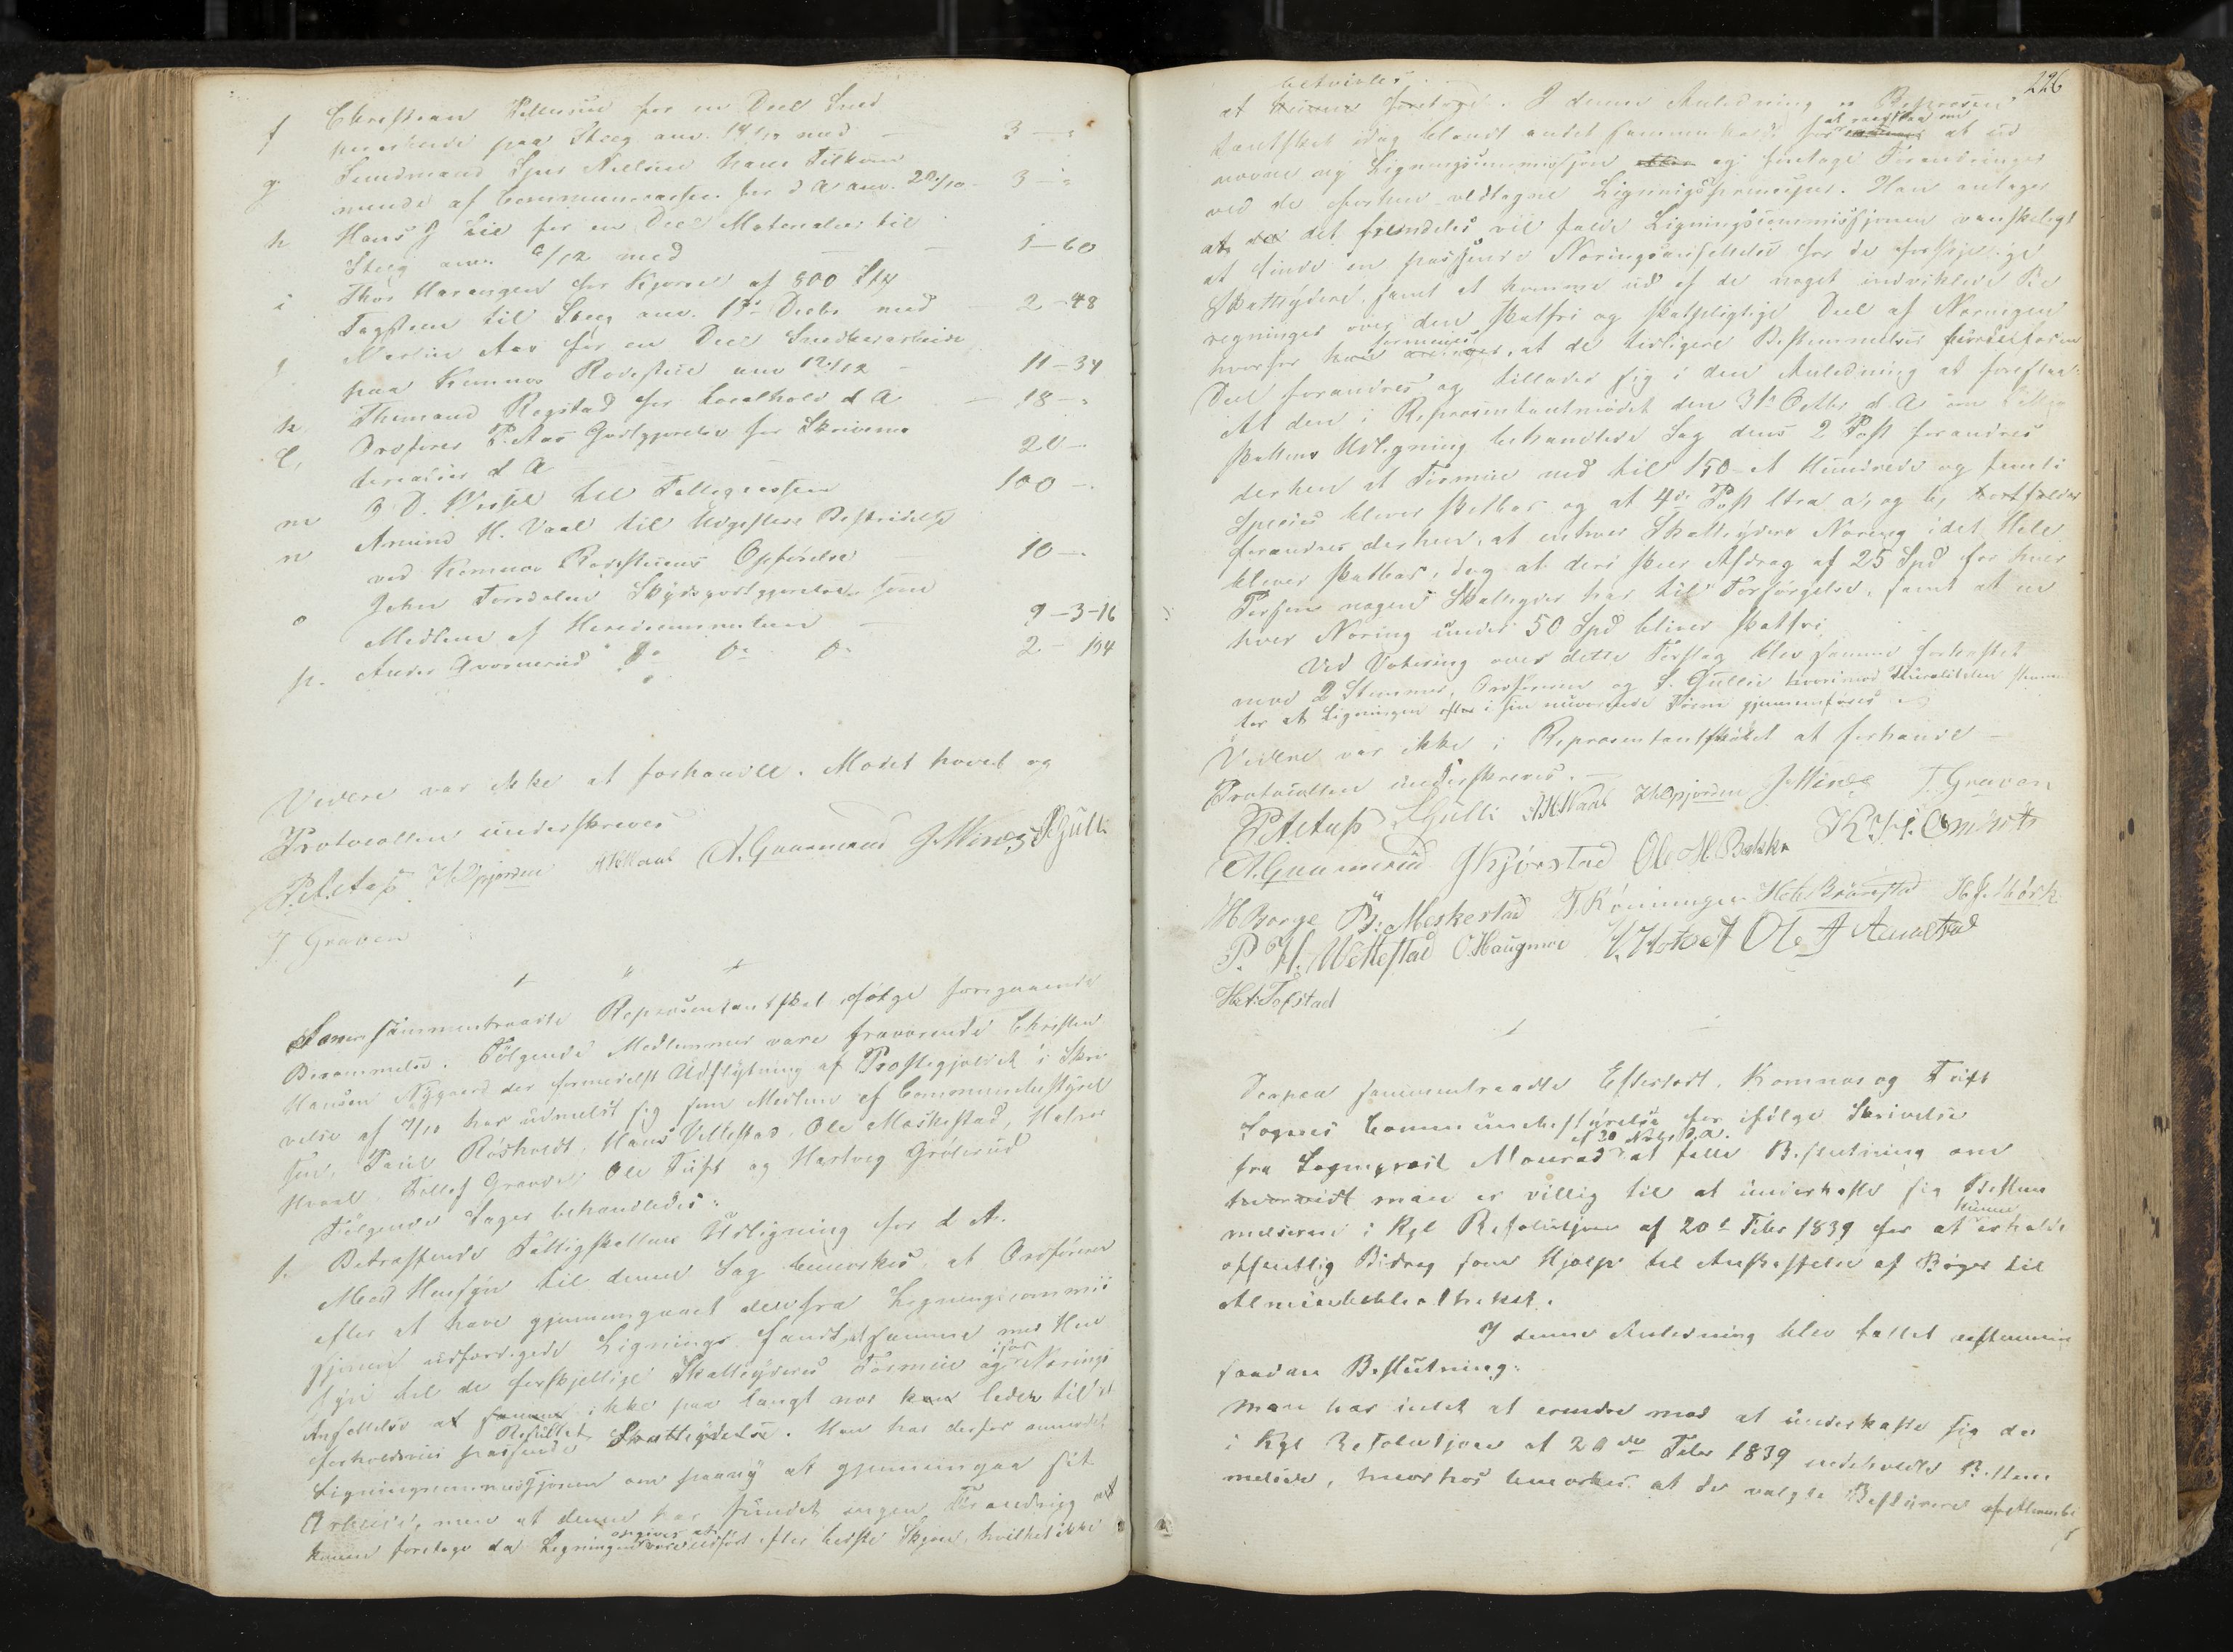 f Christian Pettersen for en Deel Smed
perarbeide paa Steeg anv. 14/12 med — 3 — "
g. Lensmand Nielsens hans Tilkom
mende af Communecassen for d A anv. 20/10 - 3 — "
h Hans J Lie for en Deel Materialier til
Steeg anv. 6/12 med — 1 — 60
i Thor Haraugen for Kjørsel af 800 Stk
Tagsteen til Steeg anv. 1ste Decbr med 2 - 48
j Martin Aas for en Deel Snedkerarbeide
paa Komnæs Rodestue anv 12/12 - 11 — 34
k. Thomand Rogstad for Localhold d A — 18 — "
l, Ordfører P. Aas Godtgjørelse for Skrivema
terialier d A 20 —
m J D. til Fattigcassen 100 — .
n Amund H. Vaal til Udgifters Bestridelse
ved Komnæs Rodestuens Opførelse 10 — .
o John Tordalen Skydsgodtgjørelse som
Medlem af Herredscommissionen — 9 — 3 - 16
p. Anders Gunnerud Do Do Do 2 - 104
Videre var ikke at forhandle. Mødet hævet og
Protocollen underskreven
P.A.Aas H.Opjorden AHVaal A.Gunnerud J.Moe S.Gulli
T. Graven
Samme sammentraadte Repræsentantskab ifølge foregaaende
Berammelse. Følgende Medlemmer vare fraværende Christen
Hansen Nygaard der formedelst Udflytning af Præstegjeldet i Skri
velse af 7/10 har udmeldt sig som Medlem af Communebestyrel
sen, Paul Røshvedt, Hans Vettestad, Ole Møskestad, Halvor
Hvaal, Tollef Graver, Ole Tuft og Hartvig Grøterud
Følgende Sager behandledes:
1. Betræffende Fattigskattens Udligning for d A.
Med Hensyn til denne Sag bemærkes, at Ordføreren
efter at have gjennemgaaet den fra Ligningscommis
sjonen udfærdigede Ligning fandt, at samme med Hen
syn til de forskjellige Skatteyderes Formue og ifør Nærings
Ansættelse at samme ikke paa langt nær kan leder til et
forholdsvis passende Resultat Skatteydelse. Han har derfor anmodet
Ligningscommissjonen om paany at gjennemgaa sit
Arbeide, men at denne har fundet ingen Forandring at
kunne foretage da Ligningen angives at være udført efter bedste Skjøn, hvilket ikke
226
betvivles
at kunne foretages. I denne Anledning er Repræsen
tantskabet idag blandt andet sammenkaldt for at raadslaa om at ud
nævne ny Ligningscommissjon eller og foretage Forandringer
ved de forhen vedtagne Ligningsprinciper. Han antager
at det fremdeles vil falde Ligningscommissjonen vanskeligt
at finde en passende Næringsansættelse for de forskjellige
Skatteydere, samt at komme ud af de noget indviklede Be
regninger over den skatfri og skatpligtige Deel af Næringen
hvorfor han formener, at de tidligere Bestemmelser for en
Deel forandres og tillader sig i den Anledning at foreslaa:
At den i Repræsentantmødet den 31te Octbr d. A om Fattig
skattens Udligning behandlede Sag dens 2 Post forandres
derhen at Formue ned til 150 et Hundrede og femti
Species bliver skatbar og at 4de Post Litra a, og b, bortfalder
forandres derhen, at enhver Skatteyders Næring i det Hele
bliver skatbar, dog at der skeer Afdrag af 25 Spd for hver
Person nogen Skatteyder har til Forsørgelse, samt at en
hver Næring under 50 Spd bliver skatfri
Ved Votering over dette Forslag blev samme forkastet
mod 2 Stemmer, Ordføreren og S. Gullie hvorimod Pluraliteten stemm
ter at Ligningen efter i sin nuværende Form gjennemføres.
Videre var ikke i Repræsentantskabet at forhandle —
Protocollen underskreves. —
P.A.Aas S.Gulli AHVaal H.Opjorden J.Moe T.Graven
A.Gunnerud J Kjørstad Ole M.Bakke K.H.
H Borge B. Meskestad T.Kønninger H.C. H.J.Mørk
P. H. Wettestad C.Haugmoe Ole A
H.A.Tofstad
Derpaa sammentraadte Eftelødt, Komnæs og Tuft
Sognes Communebestyrelse for ifølge Skrivelse
fra Sogneprest Monrad af 20 Novbr d.A. at fatte Beslutning om
hvorvidt man er villig til at underkaste sig Bestem
melserne i Kgl Resolutjon af 20de Febr 1839 for at kunne erholde
offentlig Bidrag som Hjælp til Anskaffelse af Bøger til
Almuebibliotheket.
I denne Anledning blev fattet eenstemmig
saadan Beslutning:
Man har intet at erindre mod at underkaste sig de
i Kgl Resolutjon af 20de Febr 1839 indeholdte Bestem
melser, hvorhos bemærkes at de valgte Bestyrere af Almuebi